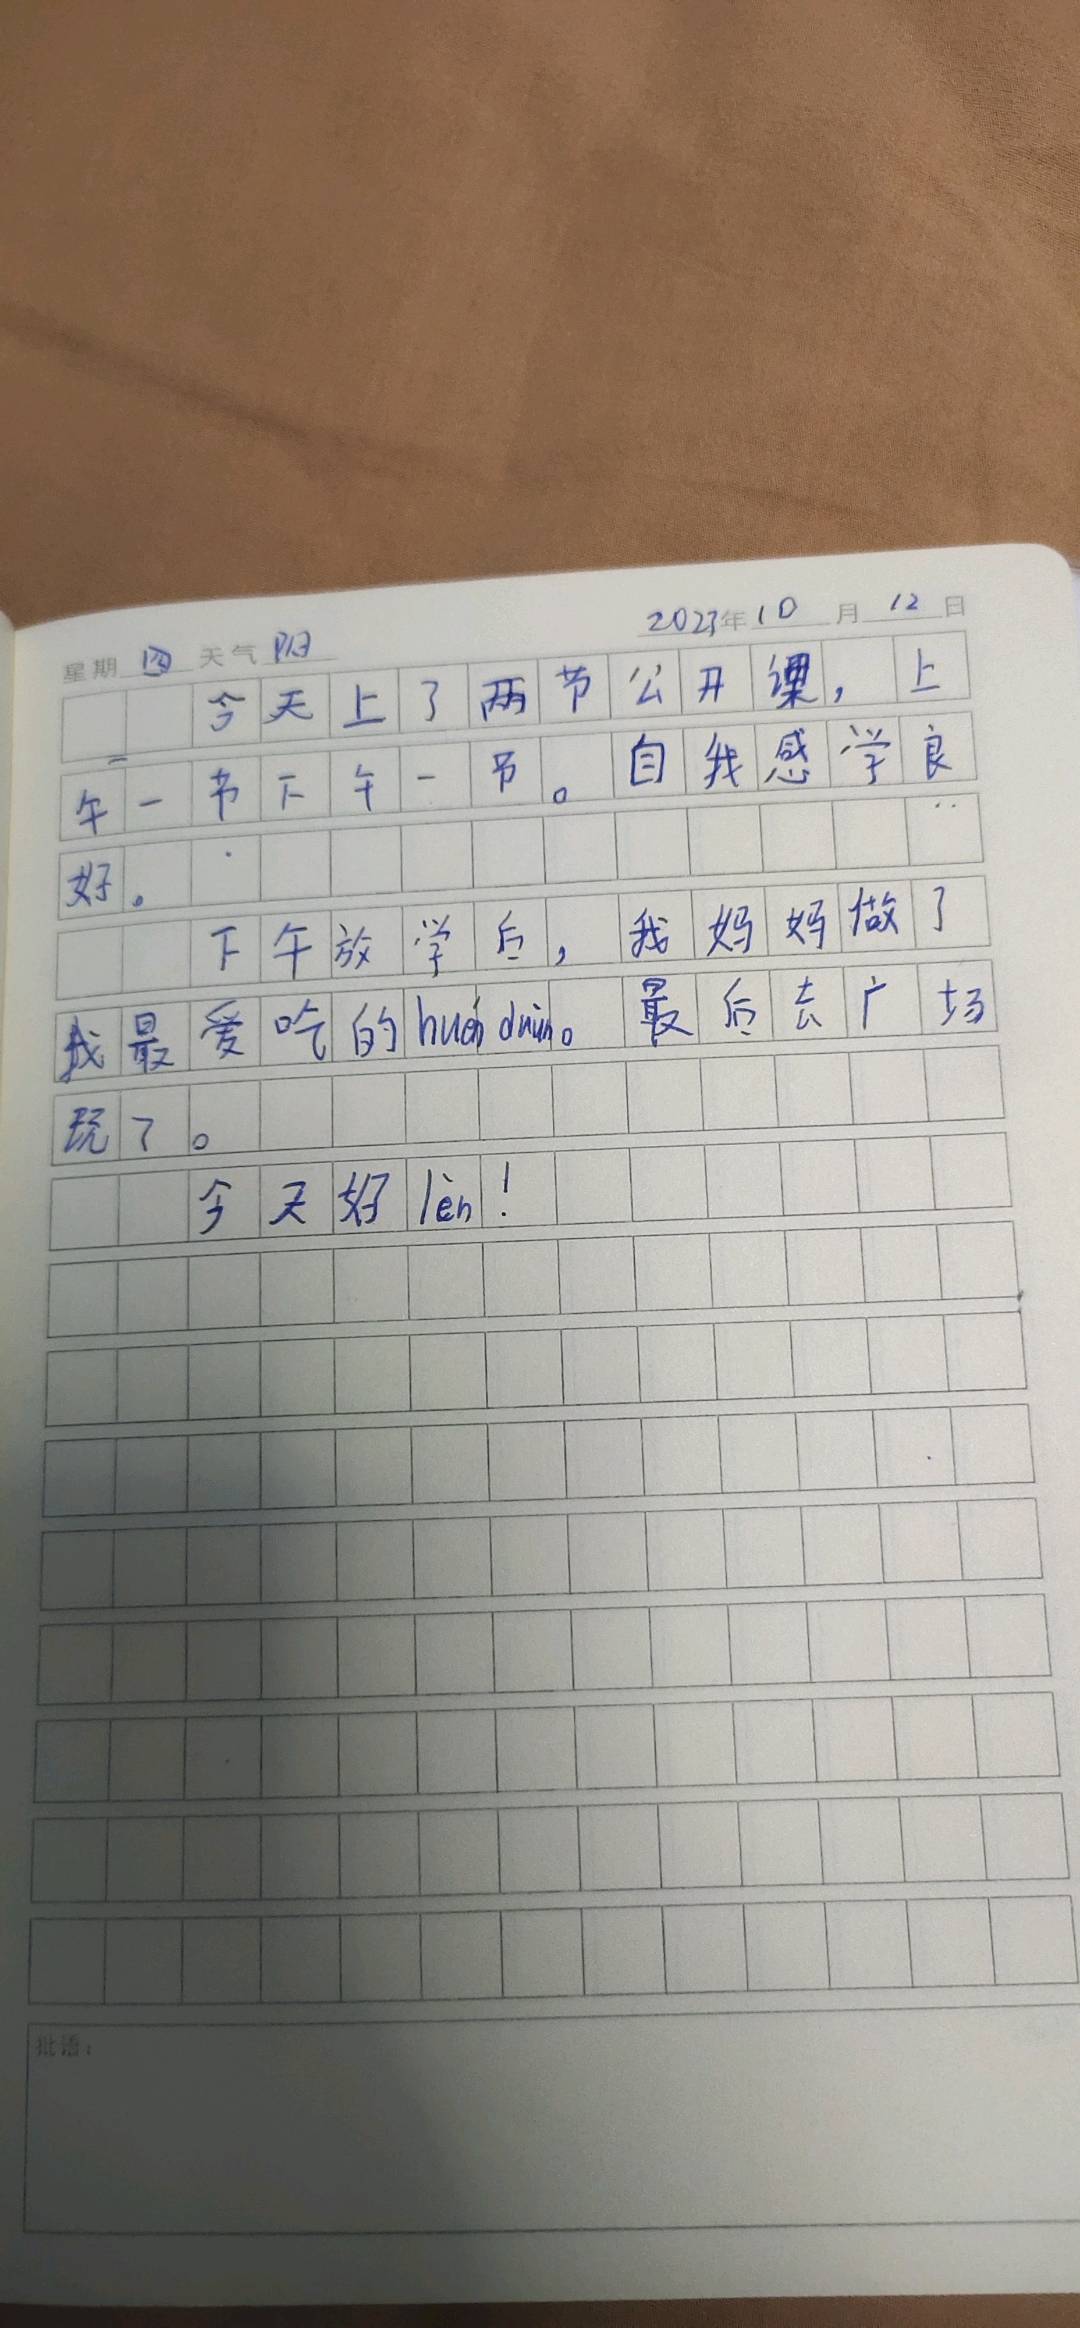 2023年10月12日
星期四 天气阳
今天上了两节公开课，上
午一节下午一节。自我感学良
好。
下午放学后，我妈妈做了
我最爱吃的hún dùn。最后去广场
玩了。
今天好lèn！
批语：